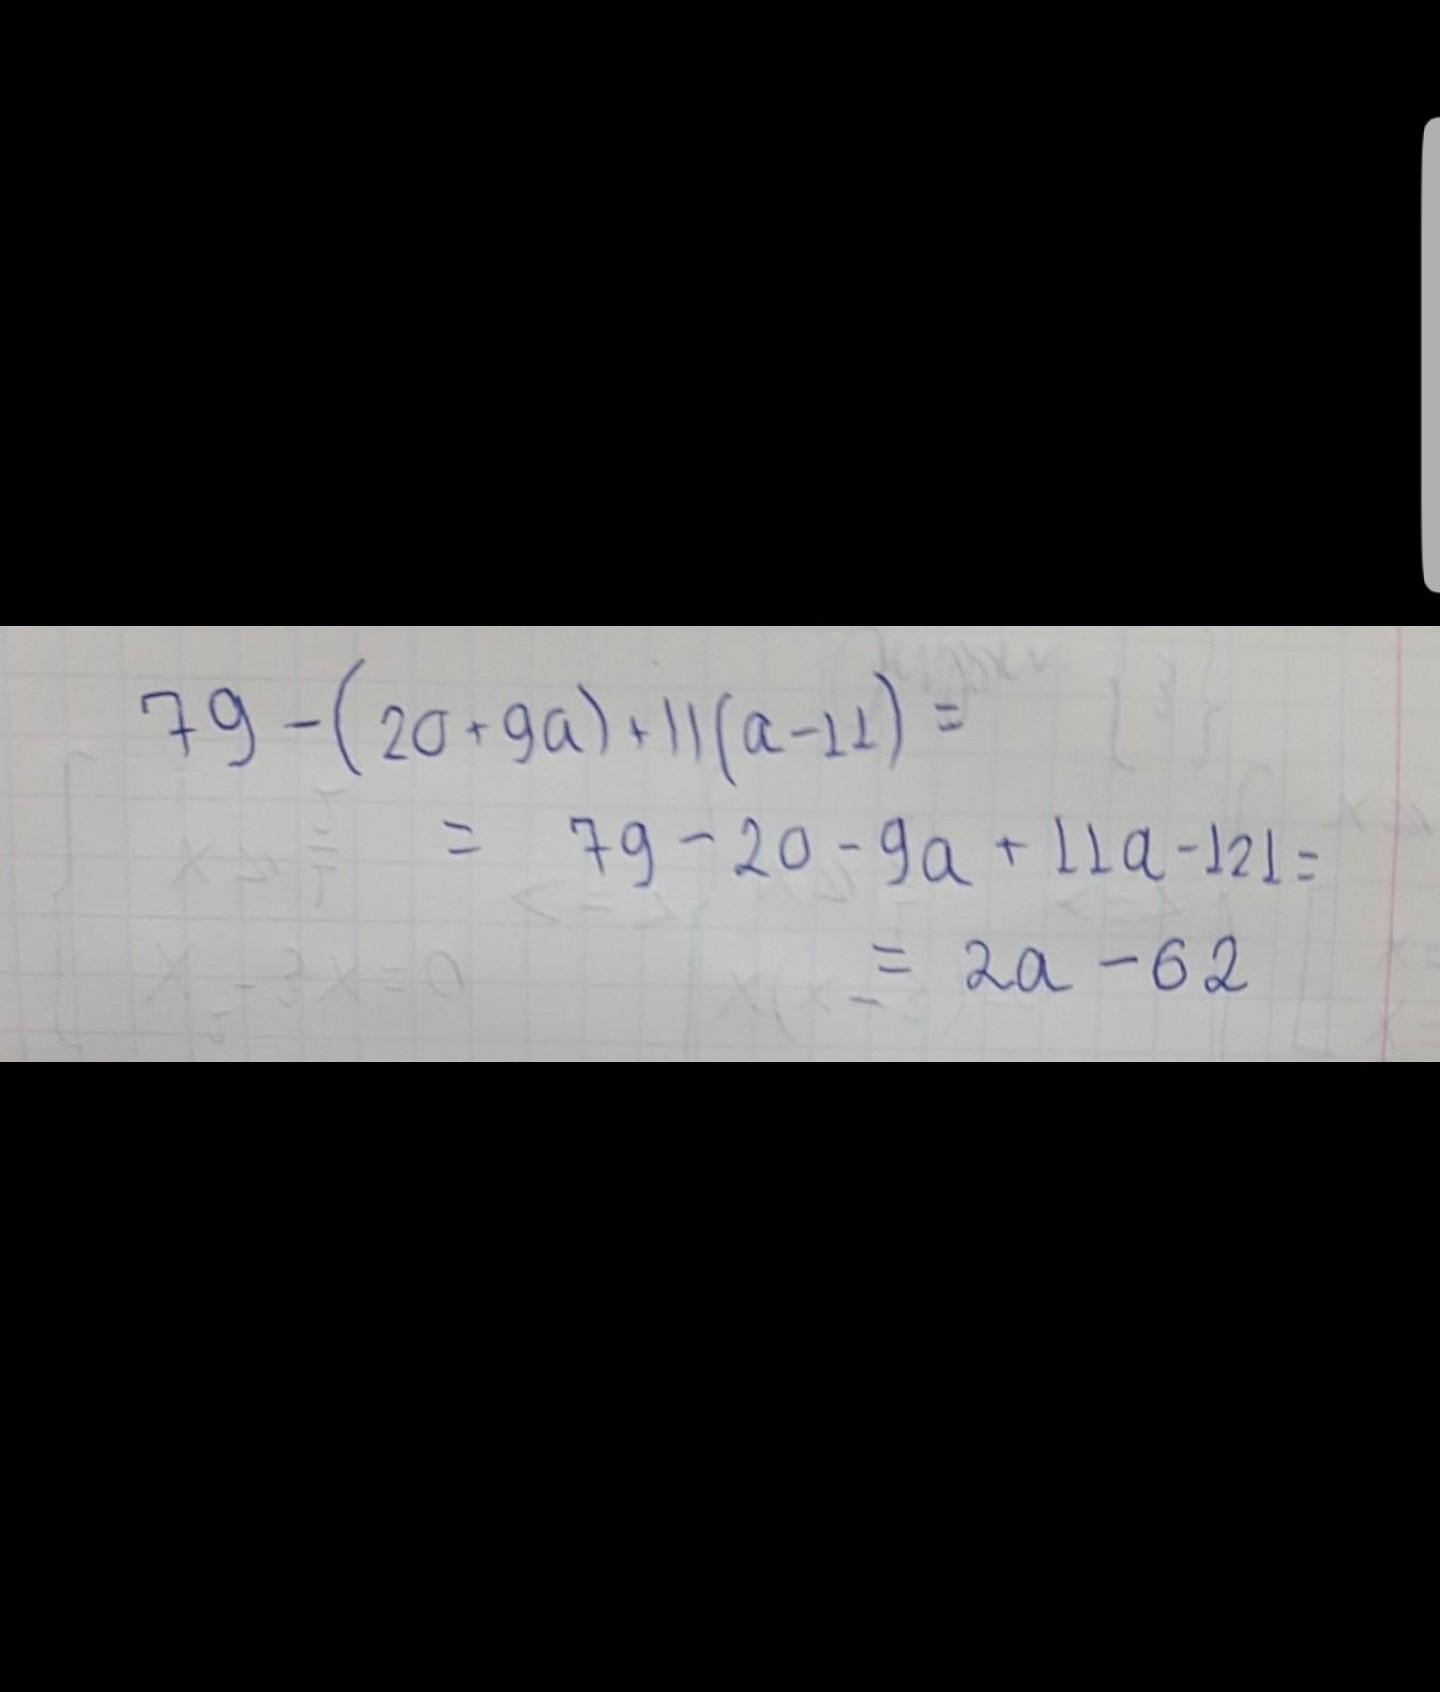 79 - (20 + 9a) + 11(a - 11) =
= 79 - 20 - 9a + 11a - 121 =
= 2a - 62